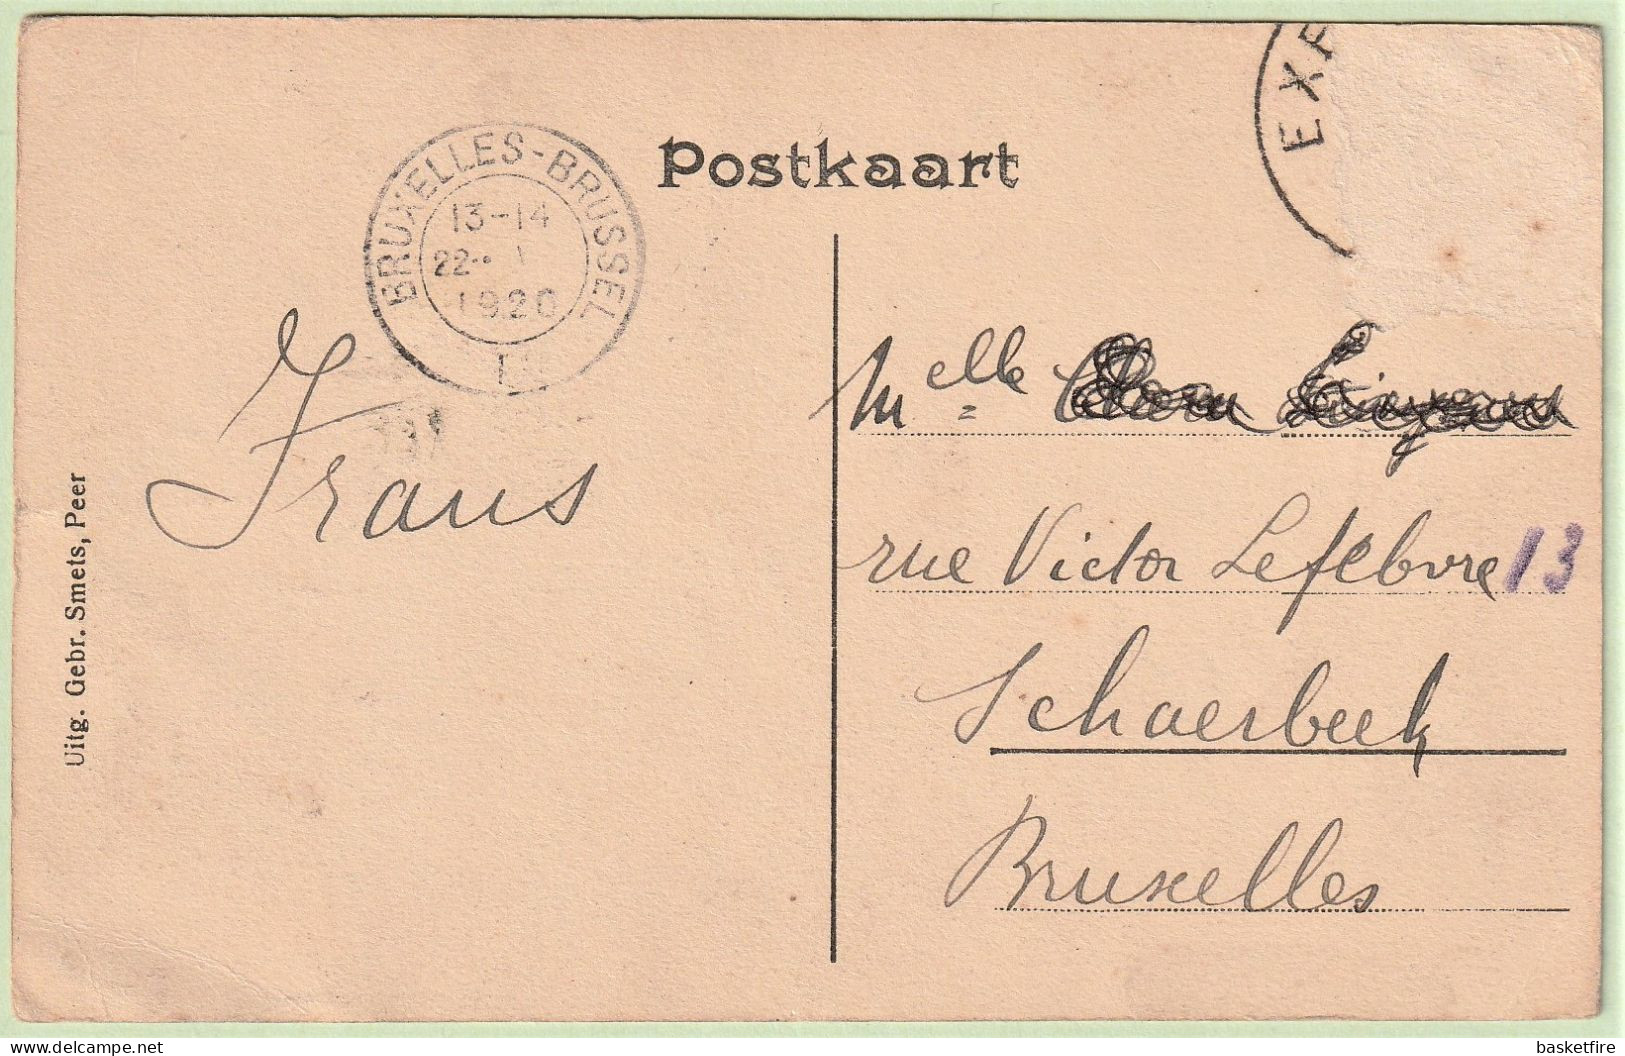 Postkaart
EXP
BRUXELLES-BRUSSEL
13-14
22
1920
Frans
Melle
rue Victor Lefebvre 13
Schaerbeek
Bruxelles
Uitg. Gebr. Smets, Peer
delcampe.net
basketfire